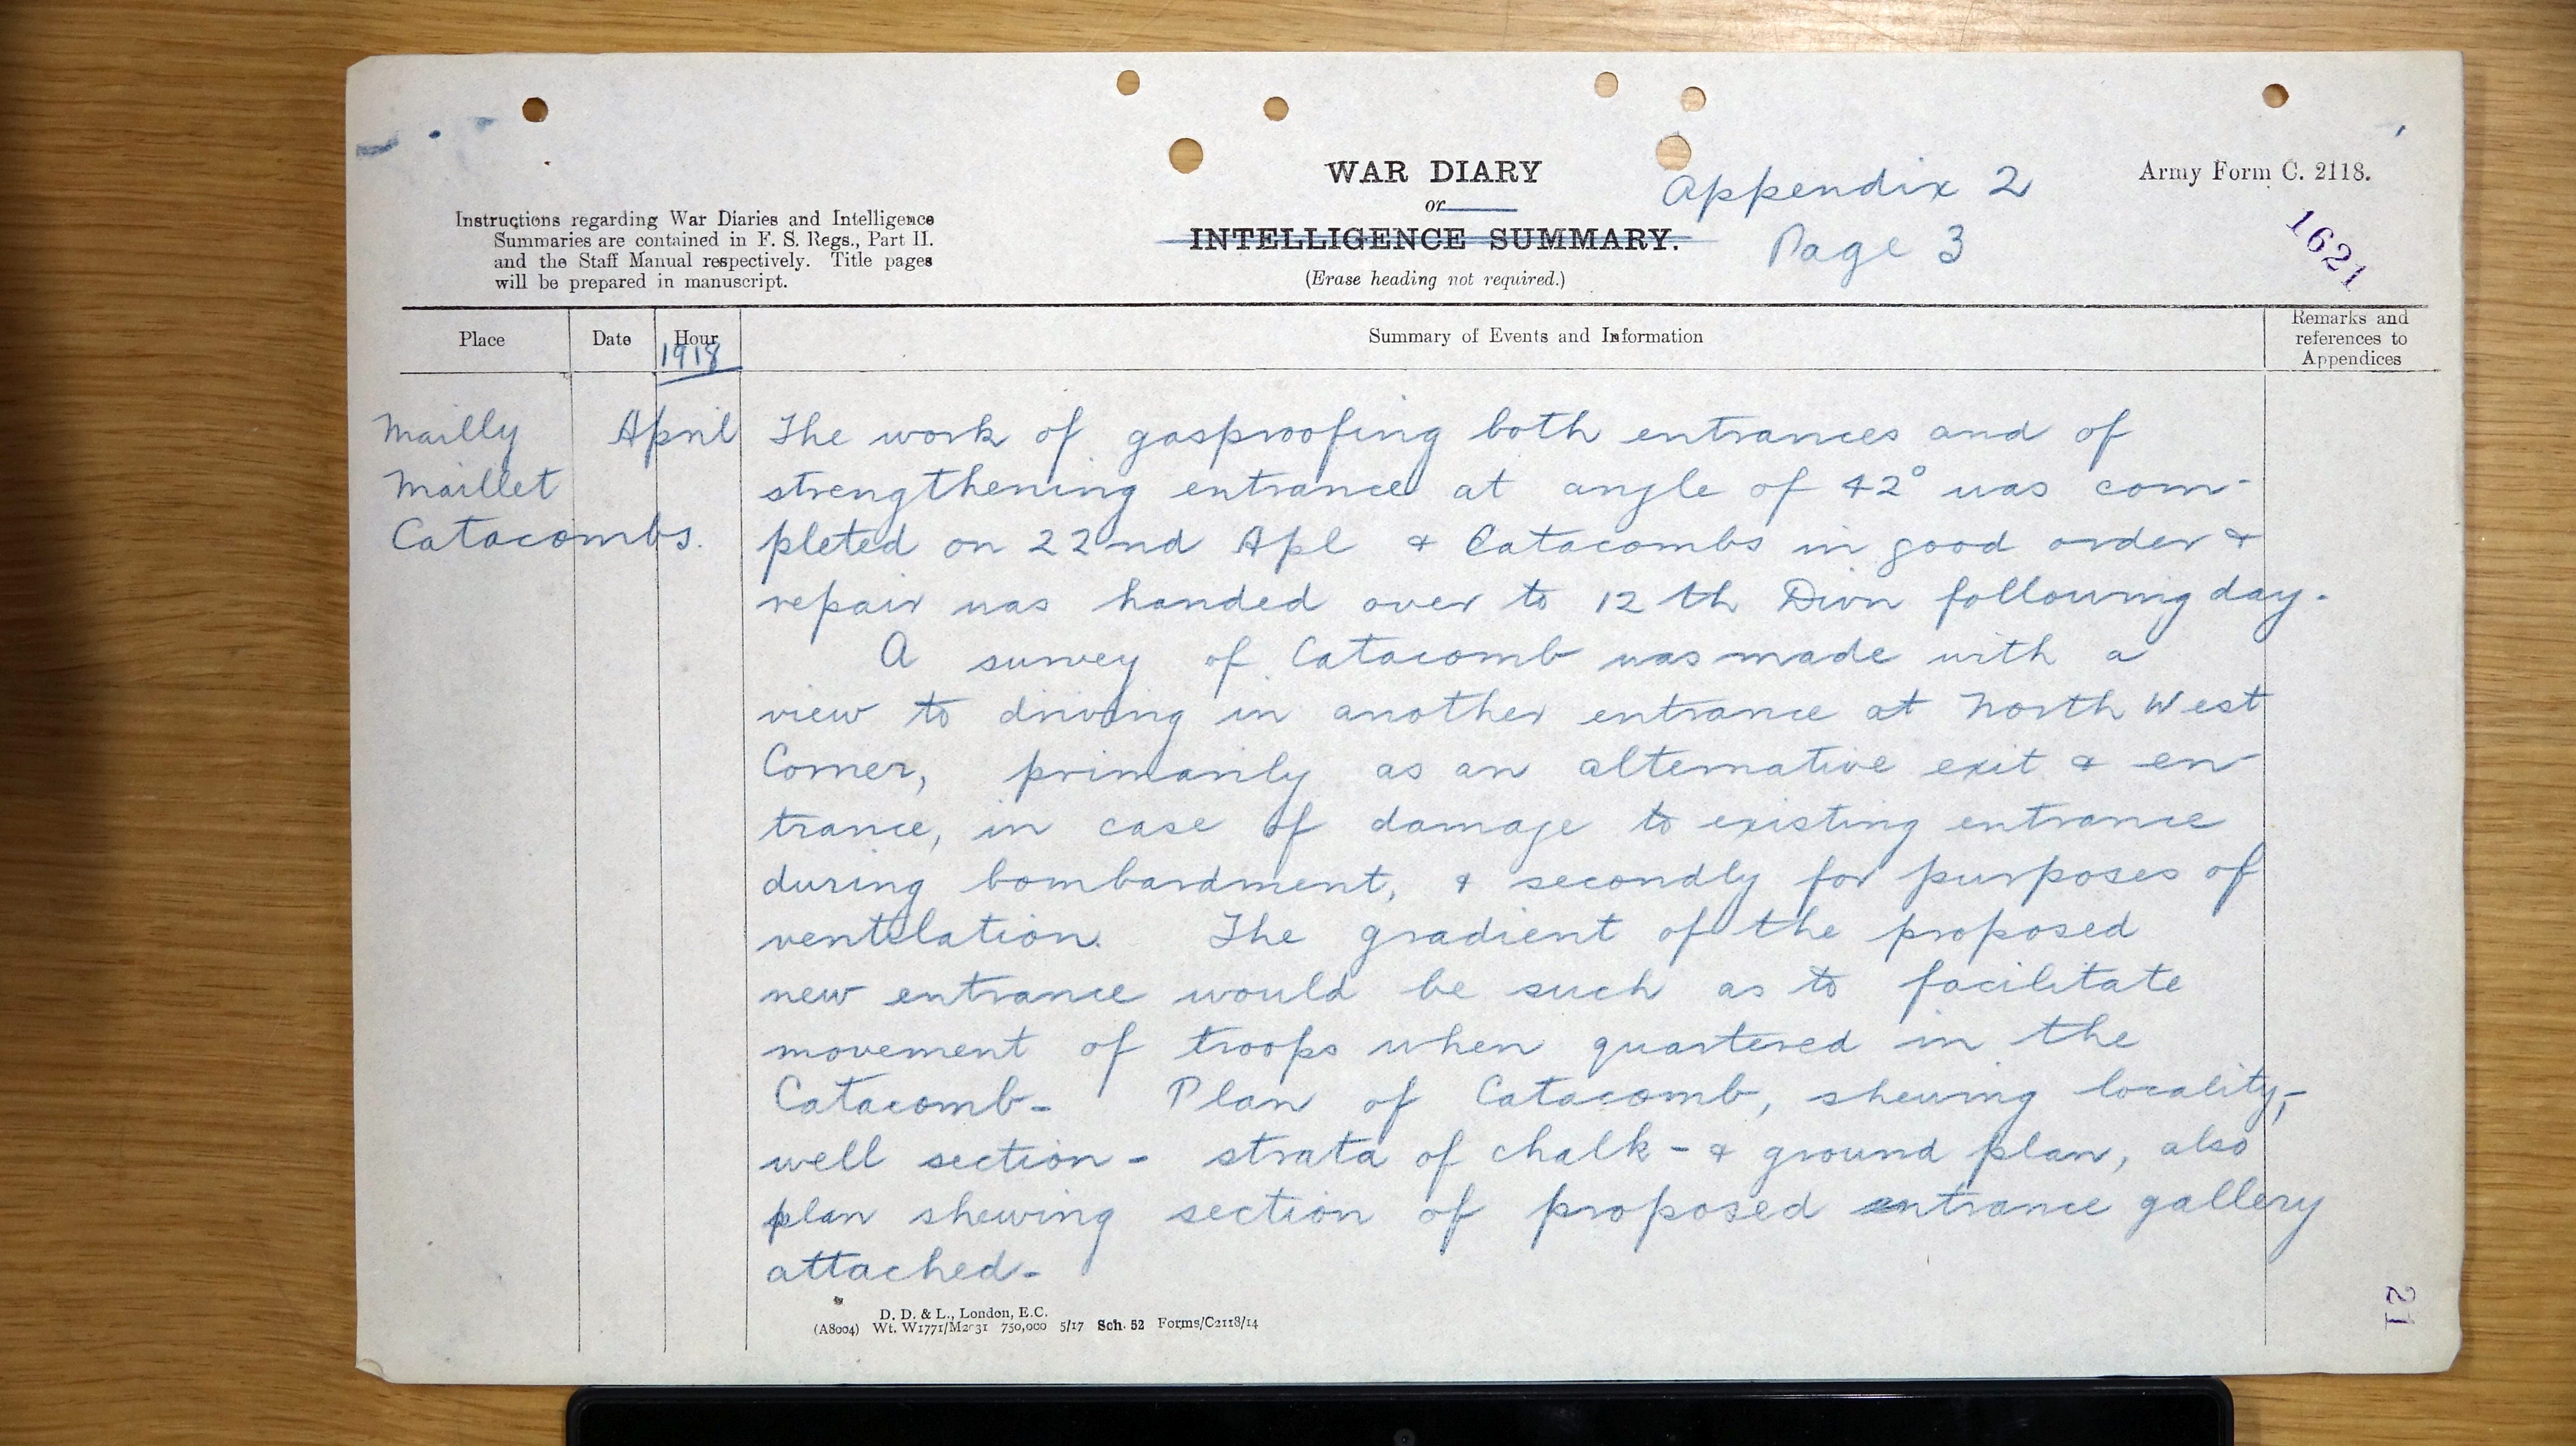 WAR DIARY
or
INTELLIGENCE SUMMARY.
(Erase heading not required.)
Appendix 2
Page 3
Army Form C. 2118.
1621
Instructions regarding War Diaries and Intelligence
Summaries are contained in F. S. Regs., Part II.
and the Staff Manual respectively. Title pages
will be prepared in manuscript.
Place
Date
Hour
1918
Summary of Events and Information
Remarks and
references to
Appendices
Mailly
Maillet
Catacombs.
April
The work of gasproofing both entrances and of
strengthening entrance at angle of 42° was com-
pleted on 22nd Apl & Catacombs in good order &
repair was handed over to 12th Divn following day.
A survey of Catacomb was made with a
view to driving in another entrance at North West
Corner, primarily as an alternative exit & en
trance, in case of damage to existing entrance
during bombardment, & secondly for purposes of
ventilation. The gradient of the proposed
new entrance would be such as to facilitate
movement of troops when quartered in the
Catacomb- Plan of Catacomb, shewing locality,-
well section - strata of chalk - & ground plan, also
plan shewing section of proposed entrance gallery
attached-
D. D. & L., London, E.C.
(A8004) Wt. W1771/M2031 750,000 5/17 Sch. 52 Forms/C2118/14
21